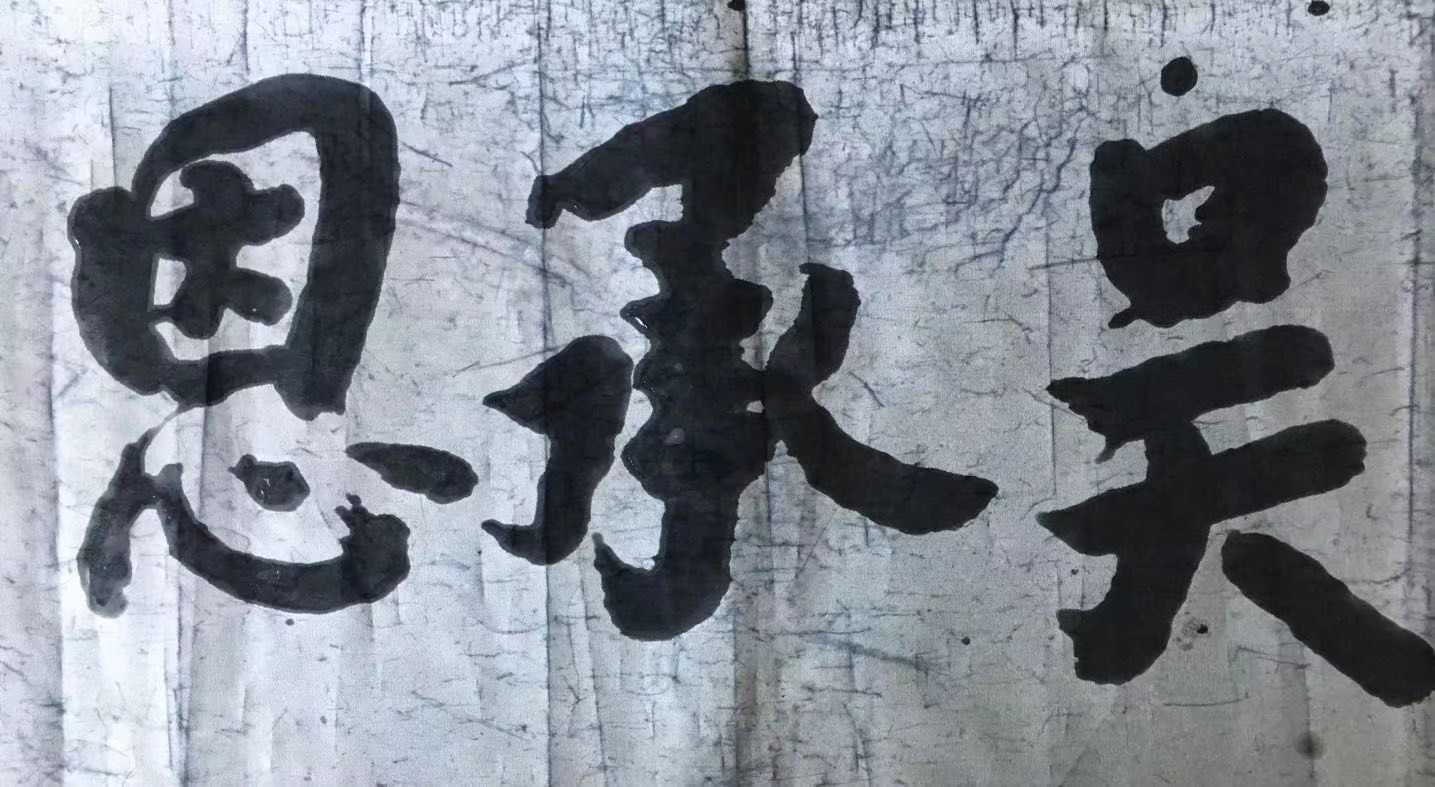 吴承恩